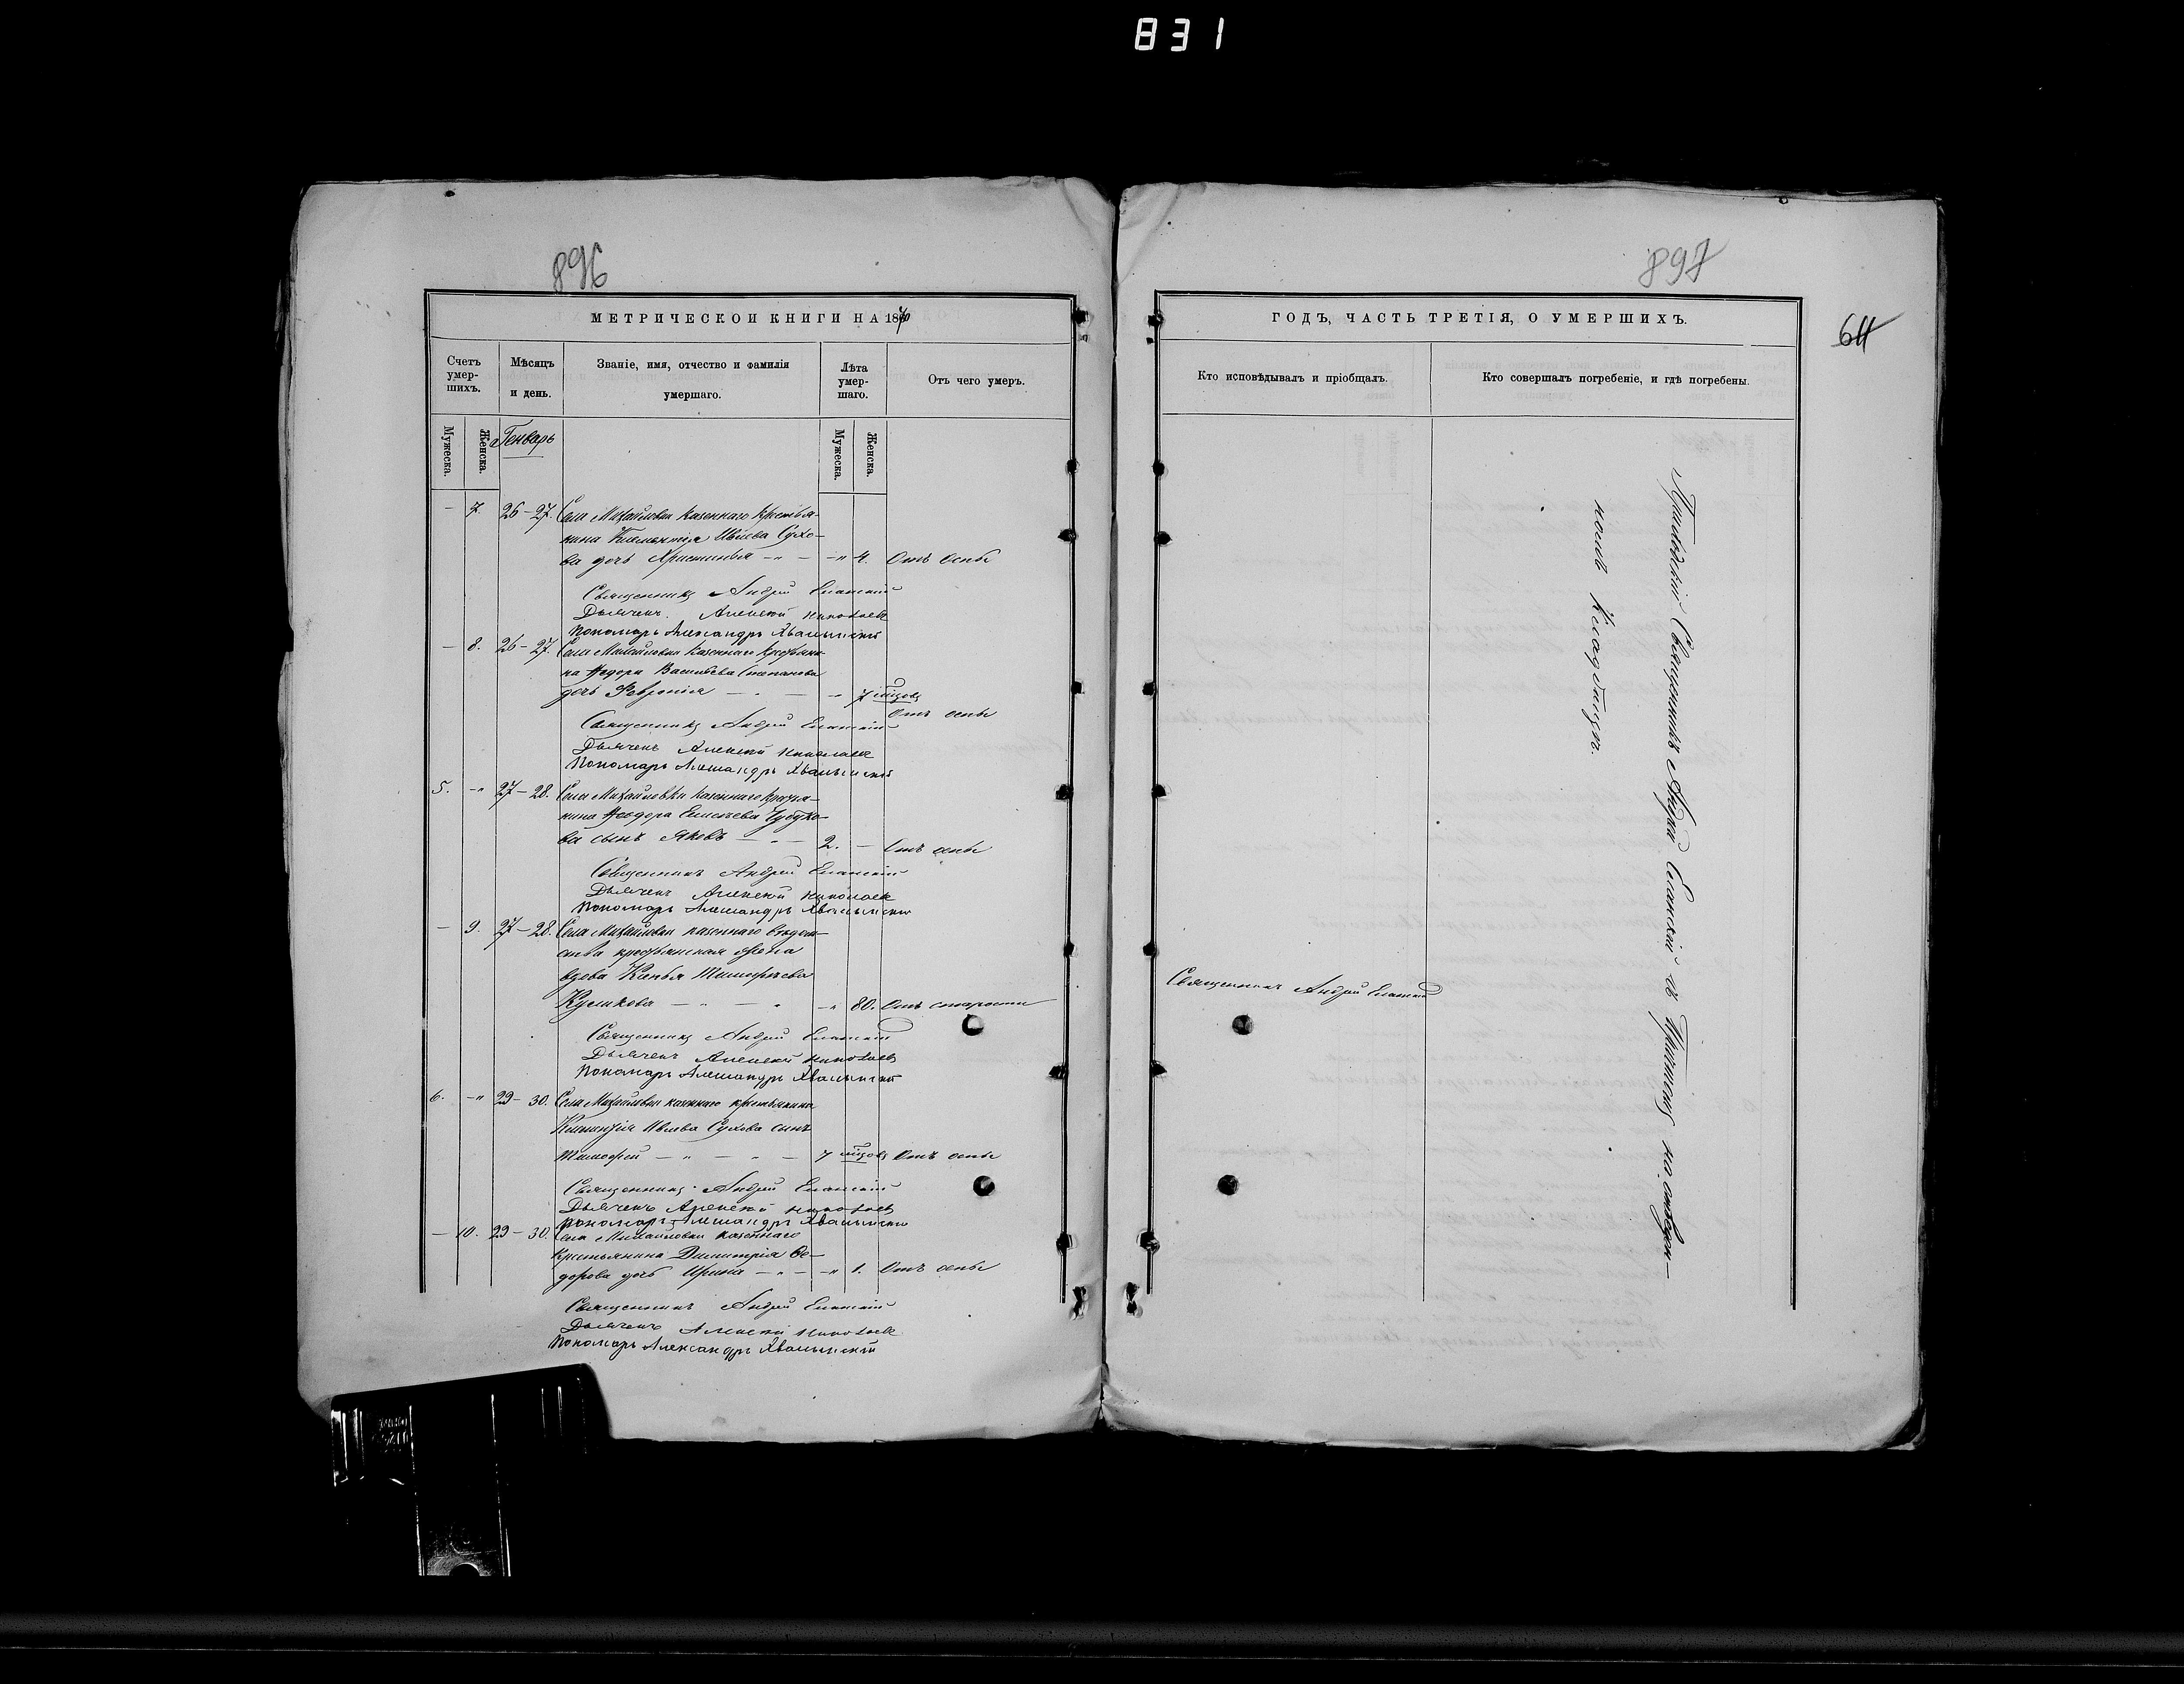 831
896
МЕТРИЧЕСКОЙ КНИГИ НА 1870
Счетъ умер-шихъ.
Мѣсяцъ и день.
Званіе, имя, отчество и фамилія умершаго.
Лѣта умер-шаго.
Отъ чего умеръ.
Мужеска.
Женска.
Генварь
Мужеска.
Женска.
— 7. 26 – 27. Села Михайловки казеннаго крестья-
нина Климентія Ивлева Сухо-
ва дочь Христинья — „ — – „ 4. Отъ оспы
Священникъ Андрей Еланскій
Дьячекъ Алексей Николаевъ
Пономарь Александръ Хвалынскій
— 8. 26 – 27. Села Михайловки казеннаго крестьяни-
на Феодора Васильева Степанова
дочь Феврония — „ — „ 7 мѣсяцовъ
Отъ оспы
Священникъ Андрей Еланскій
Дьячекъ Алексей Николаевъ
Пономарь Александръ Хвалынскій
5. – „ 27 – 28. Села Михайловки казеннаго крестья-
нина Феодора Елисеева
ва сынъ Яковъ — „ — 2. — Отъ оспы
Священникъ Андрей Еланскій
Дьячекъ Алексей Николаевъ
Пономарь Александръ Хвалынскій
— 9. 27 – 28. Села Михайловки казеннаго вѣдом-
ства крестьянская жена
вдова Тимофеева
Куликова — „ — „ – „ 80. Отъ старости
Священникъ Андрей Еланскій
Дьячекъ Алексей Николаевъ
Пономарь Александръ Хвалынскій
6. – „ 29 – 30. Села Михайловки казеннаго крестьянина
Климентія Ивлева Сухова сынъ
Тимофей — „ — „ — 7 мѣсяцовъ Отъ оспы
Священникъ Андрей Еланскій
Дьячекъ Алексей Николаевъ
Пономарь Александръ Хвалынскій
— 10. 29 – 30. Села Михайловки казеннаго
крестьянина Димитрія Ѳе-
дорова дочь Ирина — „ — – „ 1. Отъ оспы
Священникъ Андрей Еланскій
Дьячекъ Алексей Николаевъ
Пономарь Александръ Хвалынскій
897
64
ГОДЪ, ЧАСТЬ ТРЕТІЯ, О УМЕРШИХЪ.
Кто исповѣдывалъ и пріобщалъ.
Кто совершалъ погребеніе, и гдѣ погребены.
Священникъ Андрей Еланскій
Приходскій Священникъ Андрей Еланскій съ Причтомъ на отведен-
номъ Кладбищѣ.